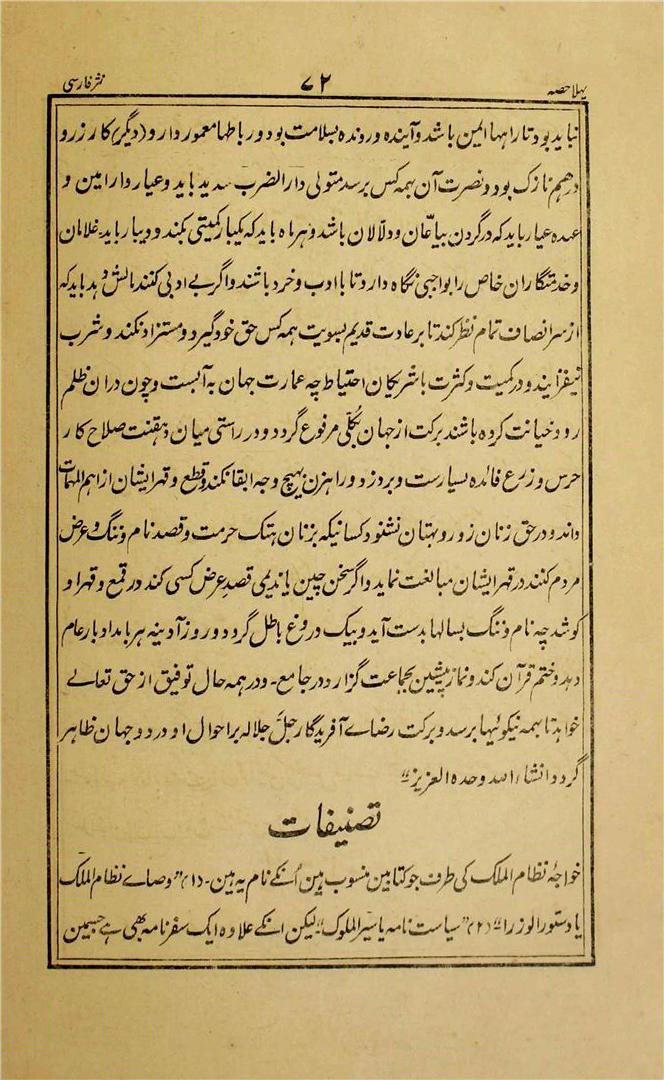 پہلا حصہ ۷۲ نثر فارسی
نباید بود تا راہہا ایمن باشد و آیندہ و روندہ بسلامت بود و رباطہا معمور دارو (دیگر) کار زر و
درہم نازک بود و نصرت آن بہمہ کس برسد متولی دار الضرب سدید باید و عیار دار امین و
عہدہ عیار باید کہ در گردن بیاعان و دلالان باشد و ہر ماہ باید کہ یکبار کمیتی بکند و دیبار باید۔ غلامان
و خدمتگاران خاص را بواجبی نگاہ دارد تا با ادب و خرد باشند و اگر بے ادبی کنند مالش دہد باید کہ
از سر انصاف تمام نظر کند تا بر عادت قدیم بسویت ہمہ کس حق خود گیرد و مستزاد نکند و شرب
نیفزایند و در کمیت و کثرت با شریکان احتیاط چہ عمارت جہان بہ آبست و چون دران ظلم
رود و خیانت کردہ باشند برکت از جہان بکلی مرفوع گردد و در راستی میان دہقنت صلاح کار
حرس و زرع فائدہ بسیارست و بر دزد و راہزن بہیچ وجہ ابقا نکند و قطع و قہر ایشان از اہم المہمات
داند و در حق زنان زور و بہتان نشنود کسانیکہ بزنان ہتک حرمت و قصد نام و ننگ و عرض
مردم کنند در قہر ایشان مبالغت نماید و اگر سخن چین یا ندیمی قصد عرض کسی کند در قمع و قہر او
کوشد چہ نام و ننگ بسالہا بدست آید و بیک دروغ باطل گردد و روز آدینہ ہر بامداد بار عام
دہد و ختم قرآن کند و نماز پیشین بجماعت گزارد در جامع۔ و در ہمہ حال توفیق از حق تعالے
خواہد تا بہمہ نیکوئیہا برسد و برکت رضاے آفریدگار جل جلالہ بر احوال او در دو جہان ظاہر
گردد انشاء اللہ وحدہ العزیز"
تصنیفات
خواجۂ نظام الملک کی طرف جو کتابین منسوب ہین اُنکے نام یہ ہین۔ (۱) "وصاے نظام الملک
یا دستور الوزرا" (۲) "سیاست نامہ یا سیر الملوک" لیکن انکے علاوہ ایک سفرنامہ بھی ہے جسمین